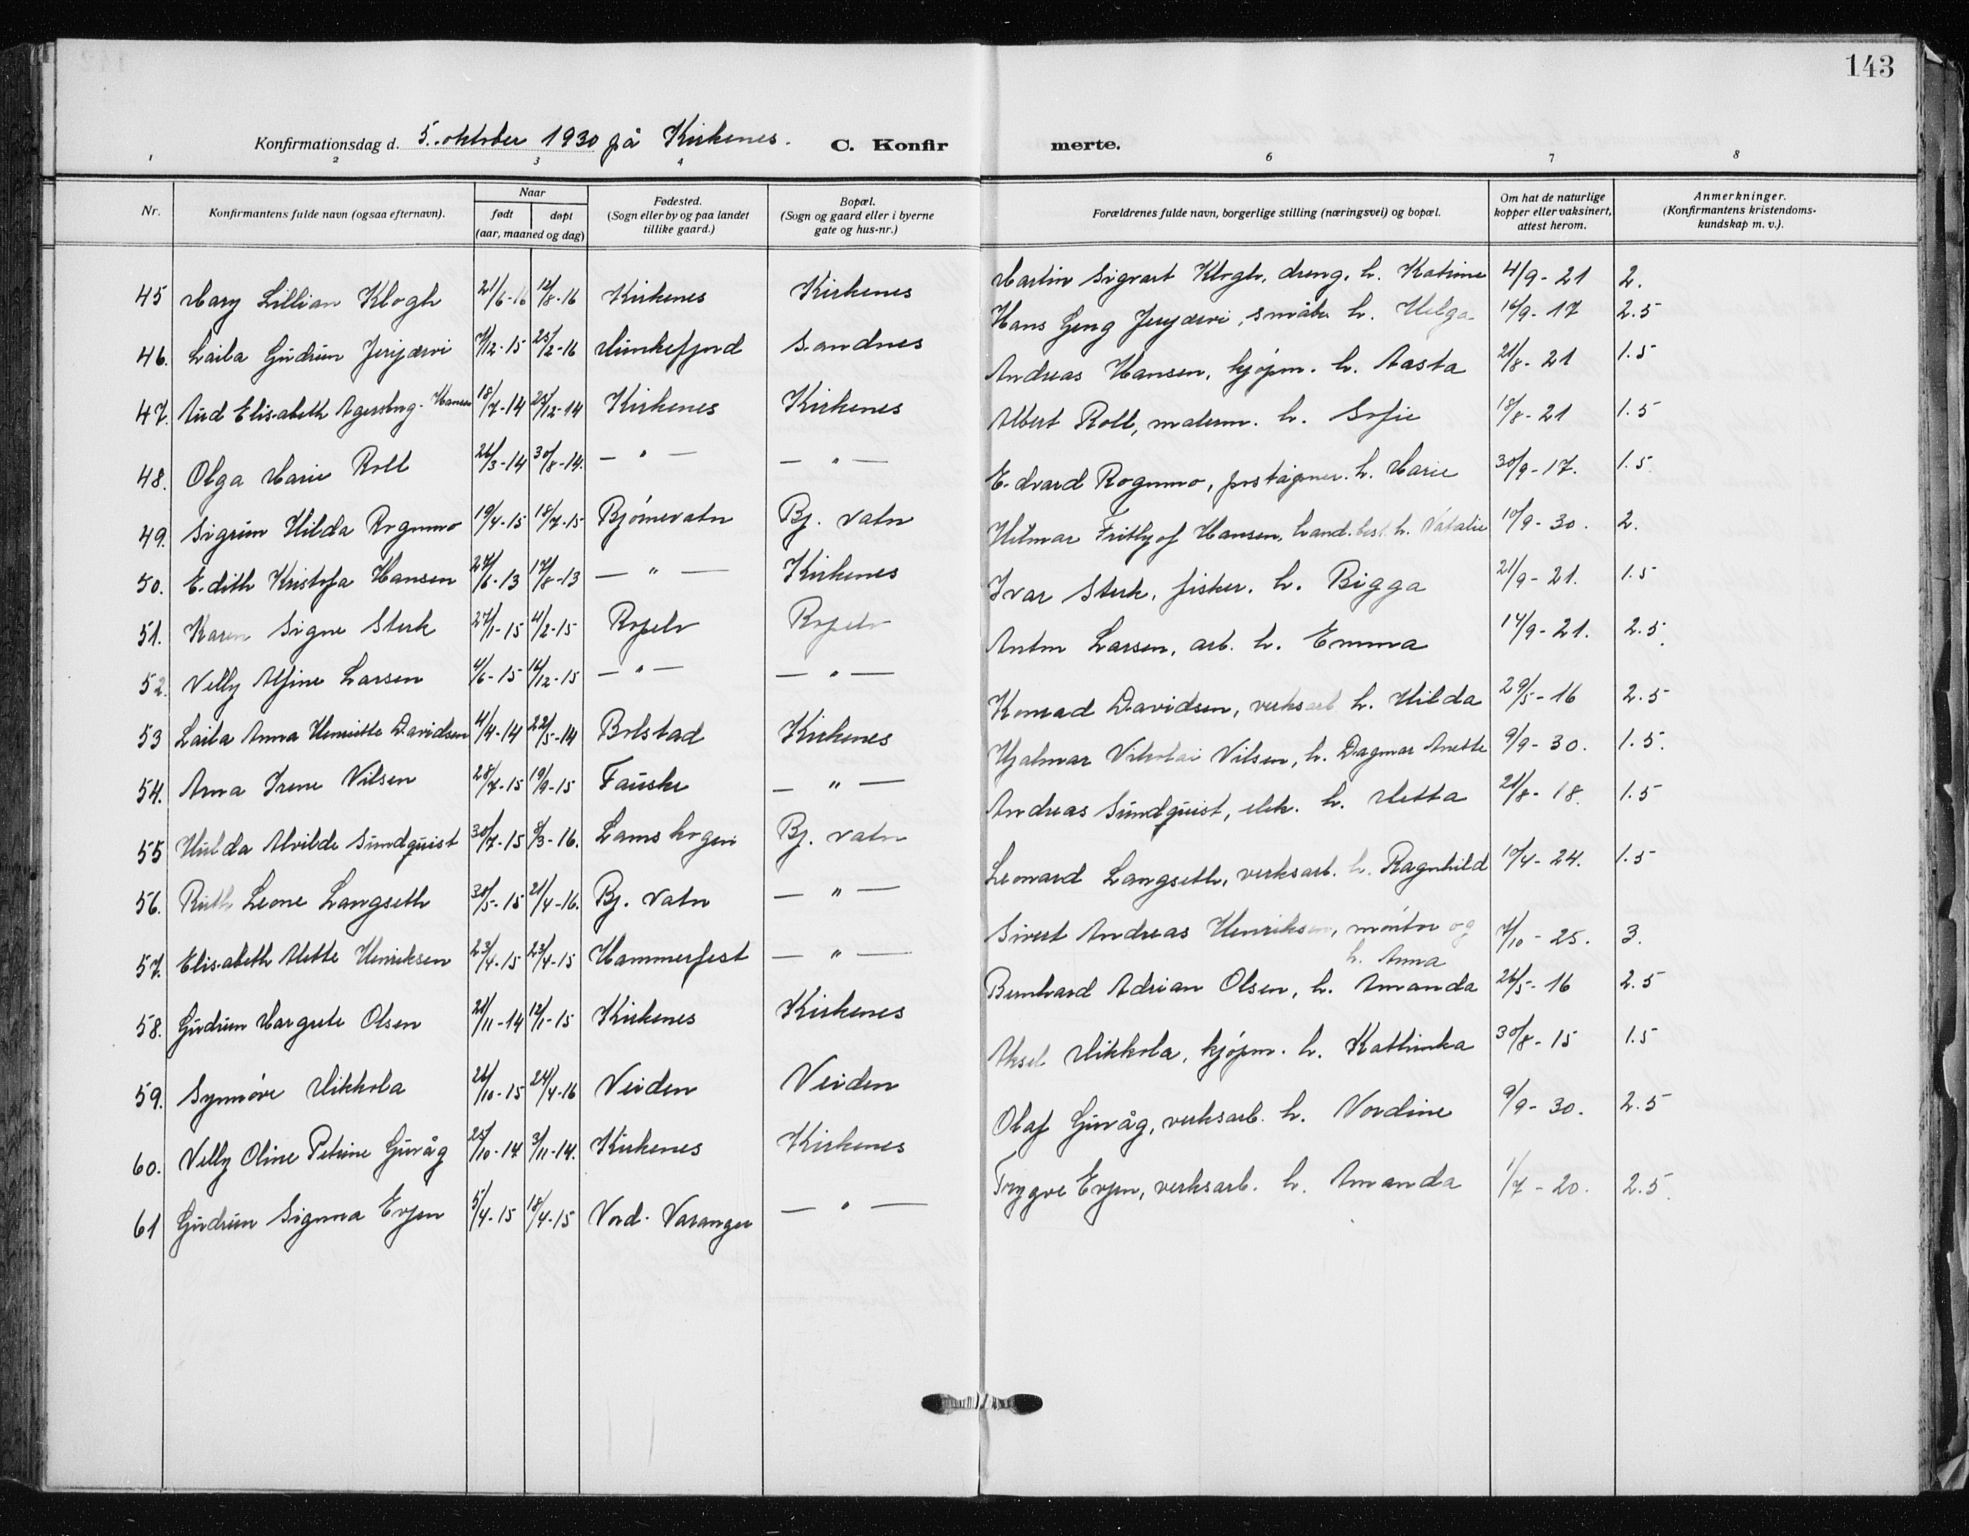 143
Konfirmationsdag d. 5. oktober 1930 på Kirkenes. C. Konfirmerte.
1 2 3 4 6 7 8
Nr. Konfirmantens fulde navn (ogsaa efternavn). Naar født døpt (aar, maaned og dag) Fødested. (Sogn eller by og paa landet tillike gaard.) Bopæl. (Sogn og gaard eller i byerne gate og hus-nr.) Forældrenes fulde navn, borgerlige stilling (næringsvei) og bopæl. Om hat de naturlige kopper eller vaksinert, attest herom. Anmerkninger. (Konfirmantens kristendomskundskap m. v.).
45 Mary Lillian Klogh 21/6-16 12/8-16 Kirkenes Kirkenes Martin Sigvart Klogh, dreng, h. Katrine 4/9-21 2.
46. Laila Gudrun Jerijærvi 7/12-15 25/2-16 Munkefjord Sandnes Hans Georg Jerijærvi, småbr. h. Helga 16/9-17 2.5
47. Aud Elisabeth Agersborg-Hansen 18/7-14 25/12-14 Kirkenes Kirkenes Andreas Hansen, kjøpm. h. Aasta 21/8-21 1.5
48. Olga Marie Roll 26/3-14 30/8-14. — " — — " — Albert Roll, malerm. h. Sofie 18/8-21 1.5
49. Sigrun Hilda Rognmo 19/4-15 18/7-15 Bjørnevatn Bj. vatn Edvard Rognmo, poståpner. h. Marie 30/9-17. 1.5
50. Edith Kristofa Hansen 27/6-13 17/8-13 — " — Kirkenes Hilmar Frithjof Hansen, hand.best. h. Natalie 10/9-30. 2.
51. Karen Signe Sterk 27/1-15 4/2-15 Ropelv Ropelv Ivar Sterk, fisker. h. Bigga 21/9-21. 1.5
52. Nelly Alfine Larsen 4/6-15 14/12-15 — " — — " — Anton Larsen, arb. h. Emma 14/9-21. 2.5
53 Laila Anna Henriette Davidsen 4/4-14 22/5-14 Bolstad Kirkenes Konrad Davidsen, verksarb. h. Hilda 29/5-16 2.5
54. Anna Irene Nilsen 28/7-15 19/9-15 Fauske — " — Hjalmar Nikolai Nilsen, h. Dagmar Anette 9/9-30. 1.5.
55 Hulda Alvilde Sundquist 30/7-15 5/3-16. Bj. vatn Andreas Sundquist, elek. h. Metta 21/8-18. 1.5
56. Ruth Leone Langseth 30/5-15 21/4-16. Bj. vatn — " — Leonard Langseth, verksarb. h. Ragnhild 10/4-24. 1.5
57. Elisabeth Mette Henriksen 23/4-15 23/4-15 Hammerfest — " — Sivert Andreas Henriksen, montør og h. Anna 7/10-25. 3.
58. Gudrun Margrete Olsen 21/11-14 12/1-15 Kirkenes Kirkenes Bernhard Adrian Olsen, h. Amanda 26/5-16 2.5
59. Synnøve Mikkola 26/10-15 24/4-16 Neiden Neiden Aksel Mikkola, kjøpm. h. Kathinka 30/8-15 1.5
60. Nelly Oline Petrine Guvåg 25/10-14 3/11-14. Kirkenes Kirkenes Olaf Guvåg, verksarb. h. Nordine 9/9-30. 2.5
61 Gudrun Signora Evjen 5/4-15 18/4-15 Nord-Varanger — " — Trygve Evjen, verksarb. h. Amanda 1/7-20. 2.5.